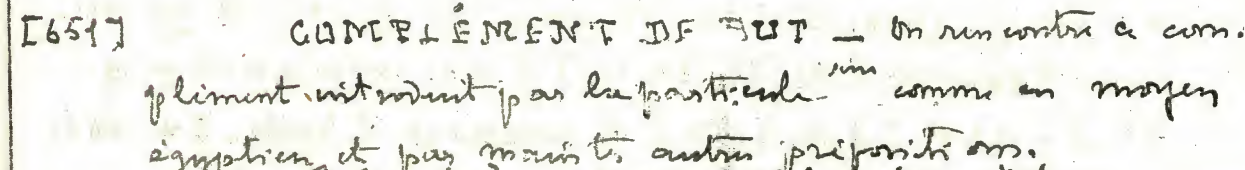 [651] COMPLÉMENT DE BUT — On rencontre ce com-
plément introduit par la particule comme en moyen
égyptien, et par maintes autres prépositions.